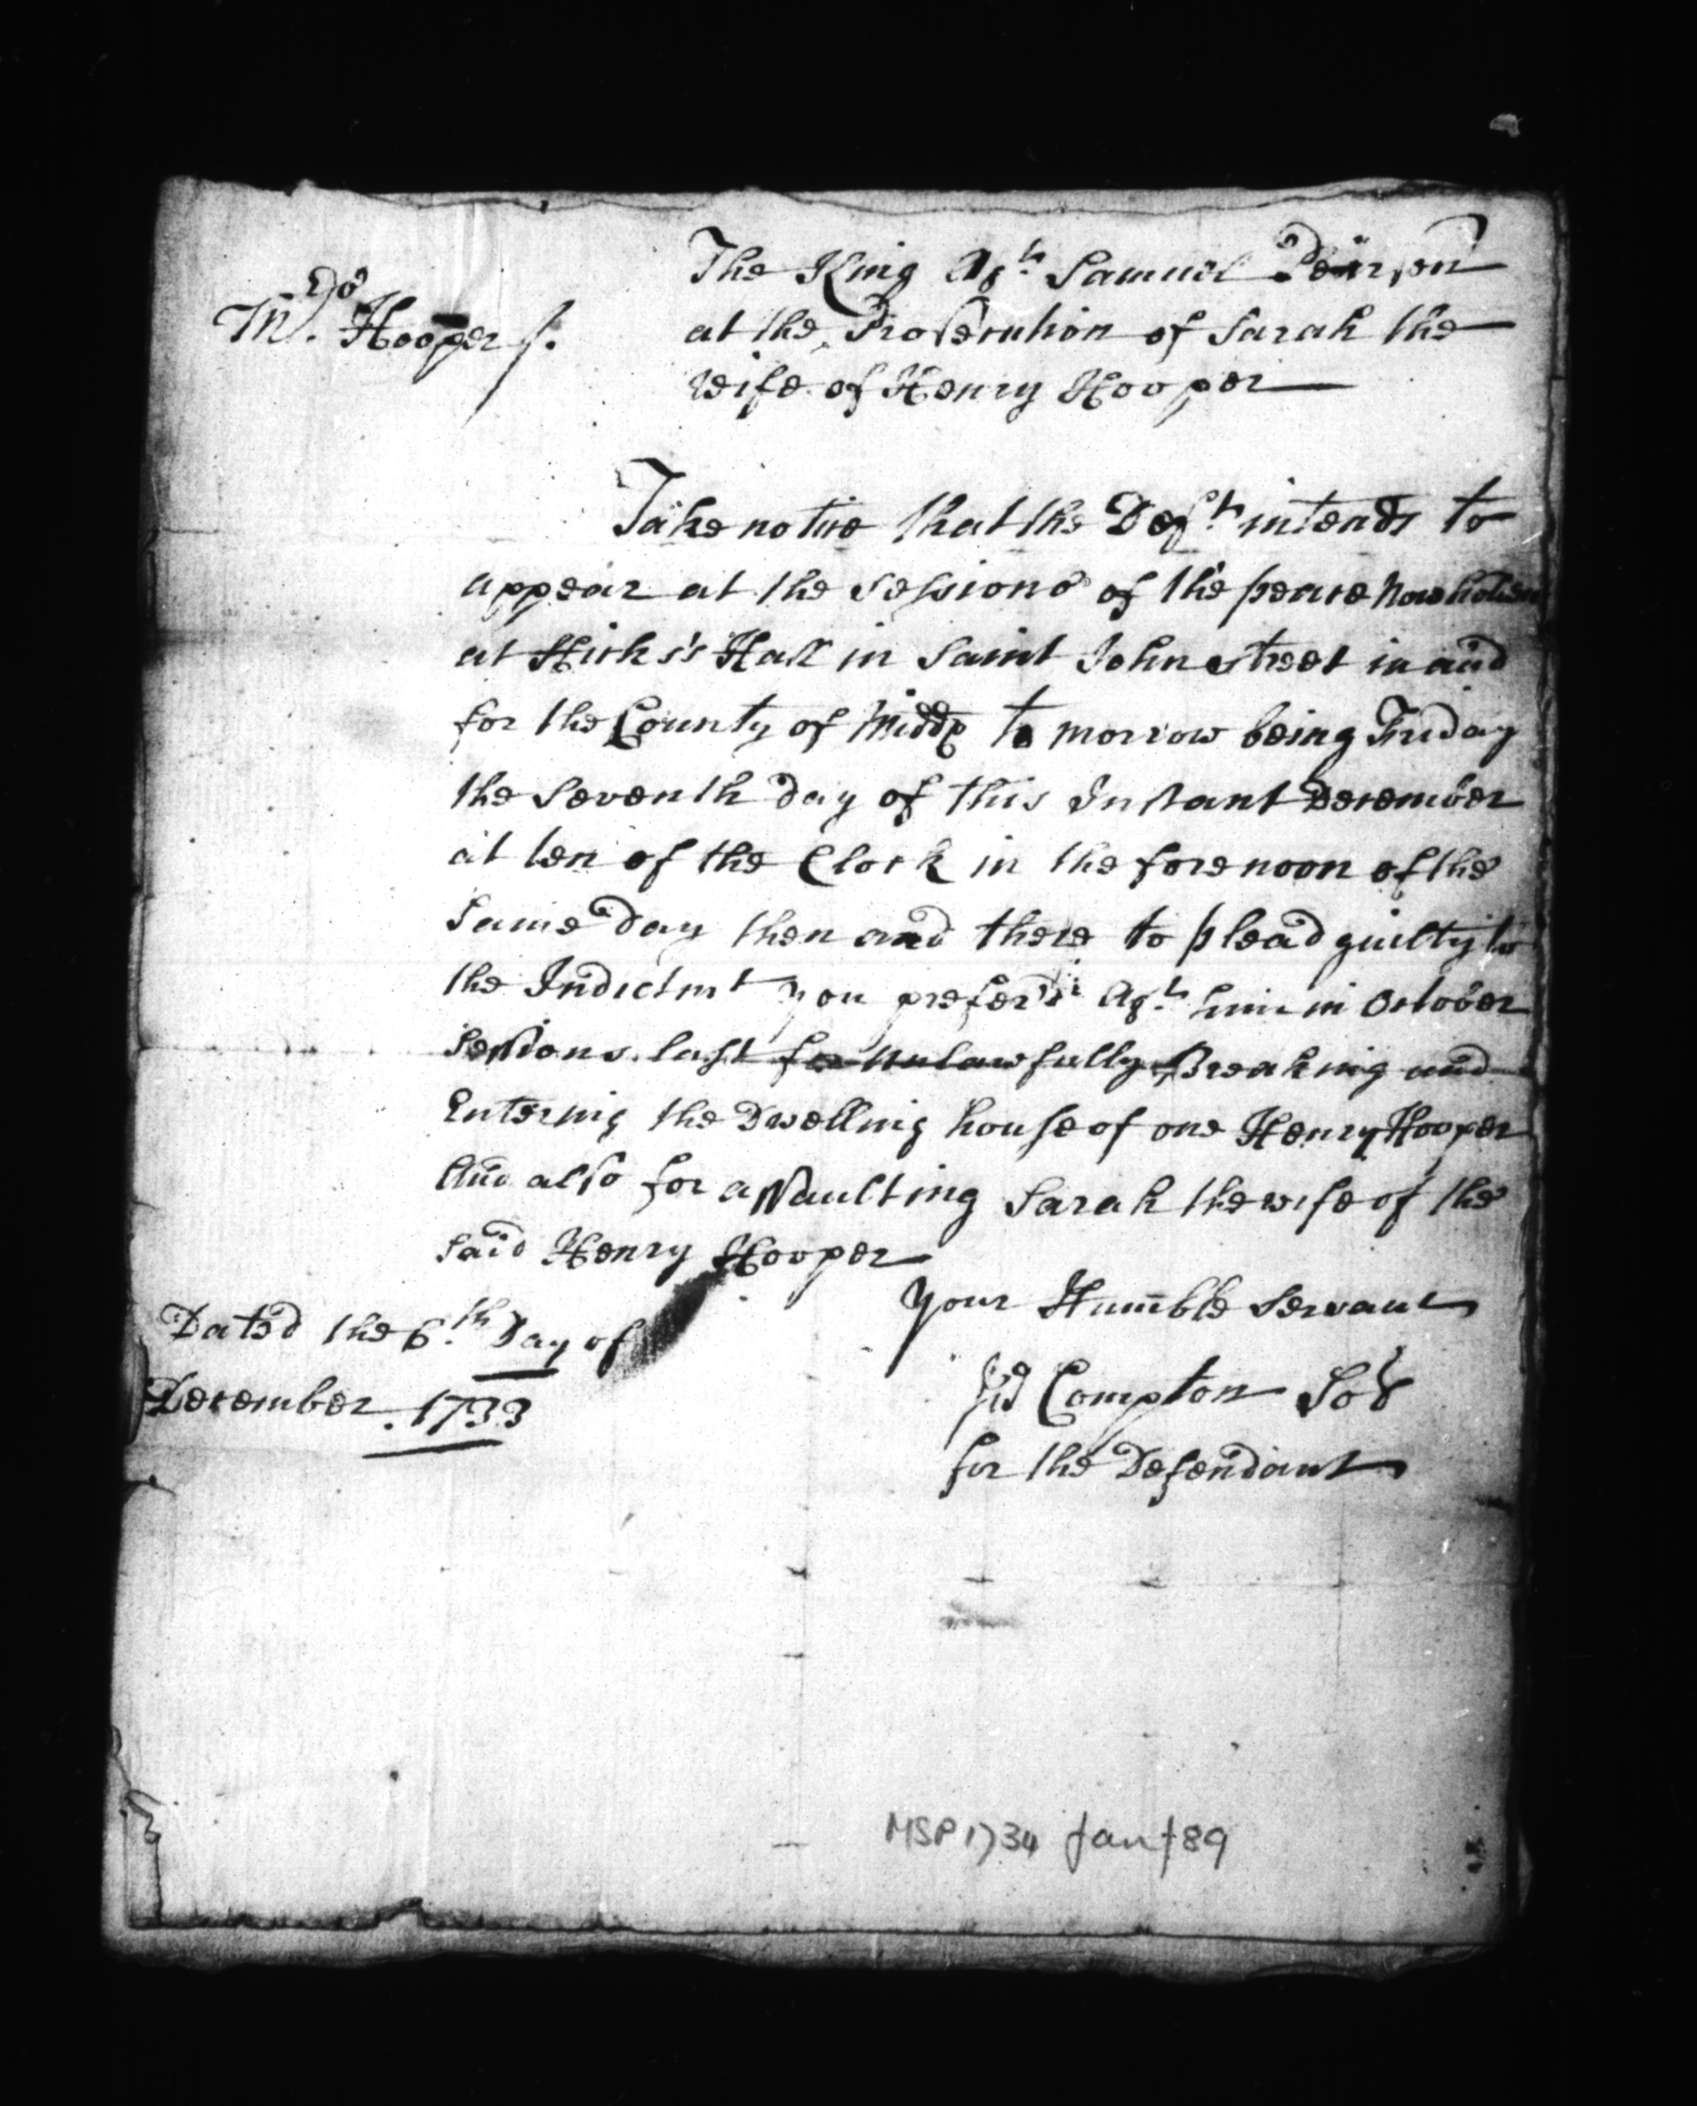 The King Agt. Samuel Pearson
Mrs. Hooper
at the Prosecution of Sarah the
wife of Henry Hooper
Take notice that the Deft. intends to
appear at the sessions of the peace now holden
at Hicks's Hall in Saint John street in and
for the County of Middx to morrow being Friday
the seventh day of this Instant December
at ten of the Clock in the fore noon of the
same day then and there to plead guilty to
the Indictmt you prefer'd Agt. him in October
sessions last for unlawfully Breaking and
Entering the Dwelling house of one Henry Hooper
And also for assaulting Sarah the wife of the
said Henry Hooper
your Humble servant
Dated the 6th. Day of
Compton Solr
December. 1733
for the Defendant
MSP 1734 Jan /89